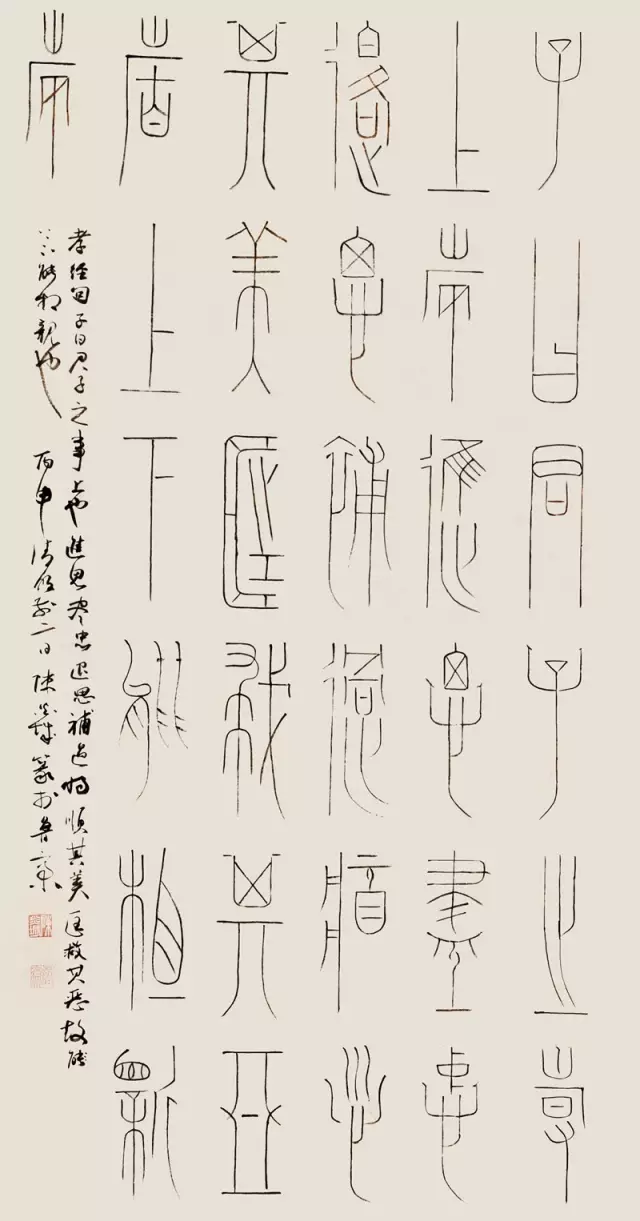 子曰君子之事
上也進思盡忠
退思補過將順
其美匡救其惡
故上下能相親
也
孝經句子曰君子之事上也進思盡忠退思補過將順其美匡救其惡故能
上下能相親也 丙申清 二日陳 篆於